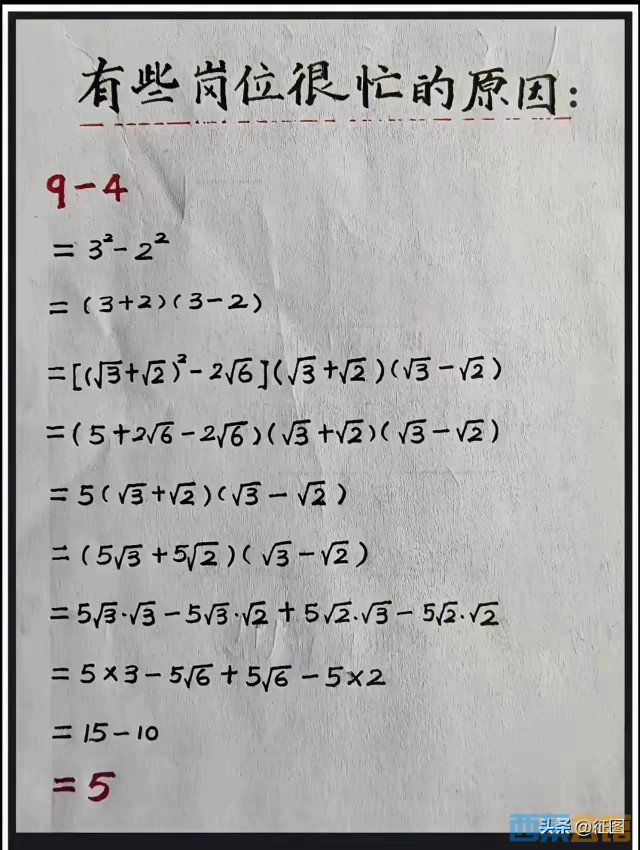 有些岗位很忙的原因:
9-4
=3²-2²
=(3+2)(3-2)
=[(√3+√2)²-2√6](√3+√2)(√3-√2)
=(5+2√6-2√6)(√3+√2)(√3-√2)
=5(√3+√2)(√3-√2)
=(5√3+5√2)(√3-√2)
=5√3·√3-5√3·√2+5√2·√3-5√2·√2
=5×3-5√6+5√6-5×2
=15-10
=5
头条 @征图